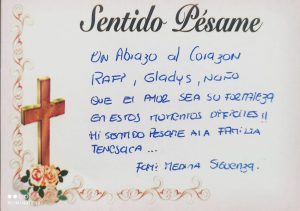 Sentido Pésame
UN ABRAZO al CORAZON
RAFA, Gladys, NOÑO
QUE EL AMOR SEA SU FORTALEZA
EN ESTOS MOMENTOS DIFICILES!!
MI SENTIDO PESAME A LA FAMILIA
FAM: MEDINA SIGUENZA.